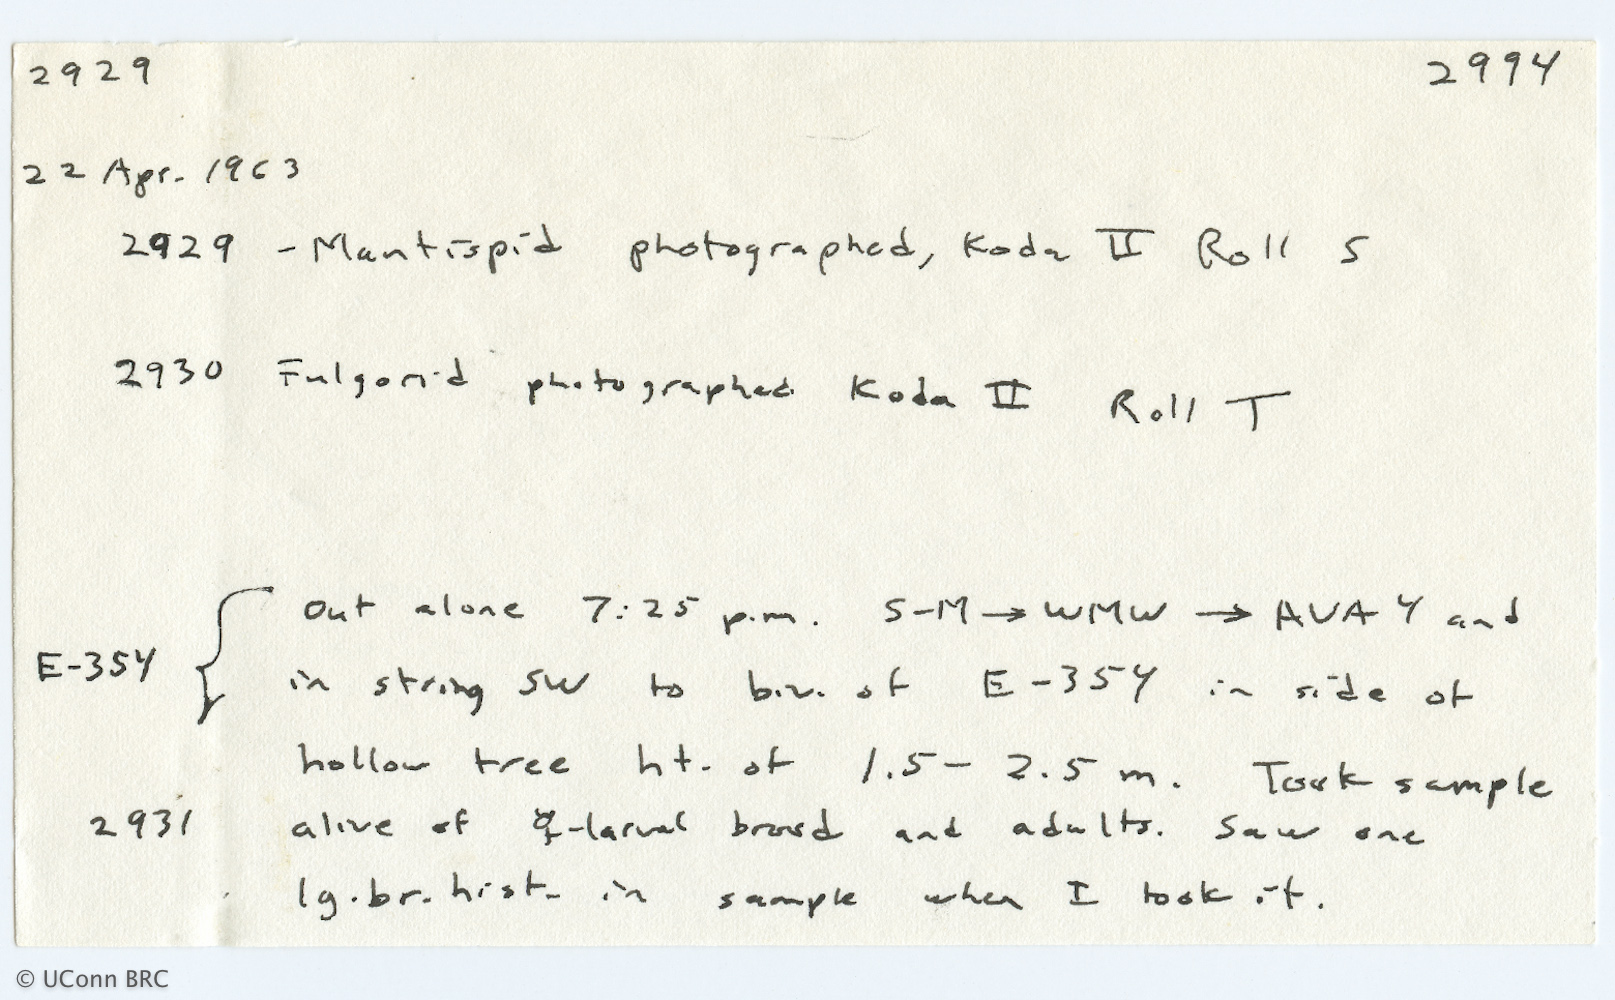 2929 2994
22 Apr. 1963
2929 - Mantispid photographed, Koda II Roll S
2930 Fulgorid photographed Koda II Roll T
Out alone 7:25 p.m. S-M → WMW → AVA 4 and
E-354 in string SW to biv. of E-354 in side of
hollow tree ht. of 1.5 - 2.5 m. Took sample
2931 alive of ☿-larval brood and adults. Saw one
lg. br. hist. in sample when I took it.
© UConn BRC